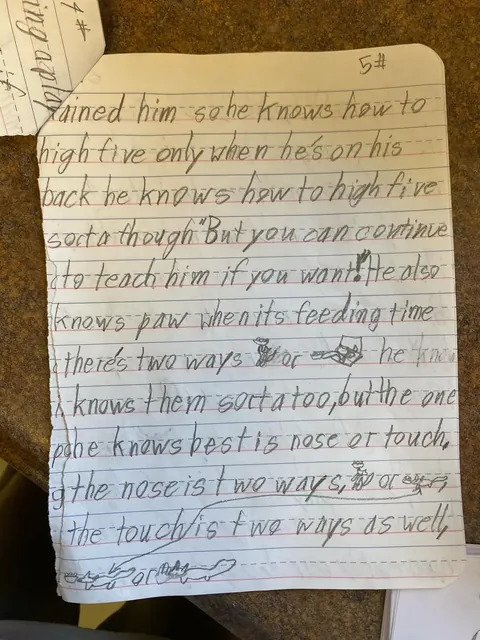 5#
tained him so he knows how to
high five only when he's on his
back he knows how to high five
sorta though "But you can continue
to teach him if you want! He also
knows paw when its feeding time
there's two ways or he know
knows them sorta too, but the one
he knows best is nose or touch,
the nose is two ways, or
the touch is two ways as well,
or